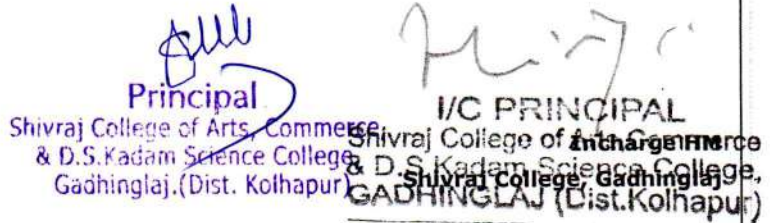 Principal
Shivraj College of Arts, Commerce
& D.S.Kadam Science College
Gadhinglaj.(Dist. Kolhapur)
I/C PRINCIPAL
Shivraj College of Arts Commerce
& D.S.Kadam Science College,
GADHINGLAJ (Dist.Kolhapur)
Incharge HM
Shivraj College, Gadhinglaj